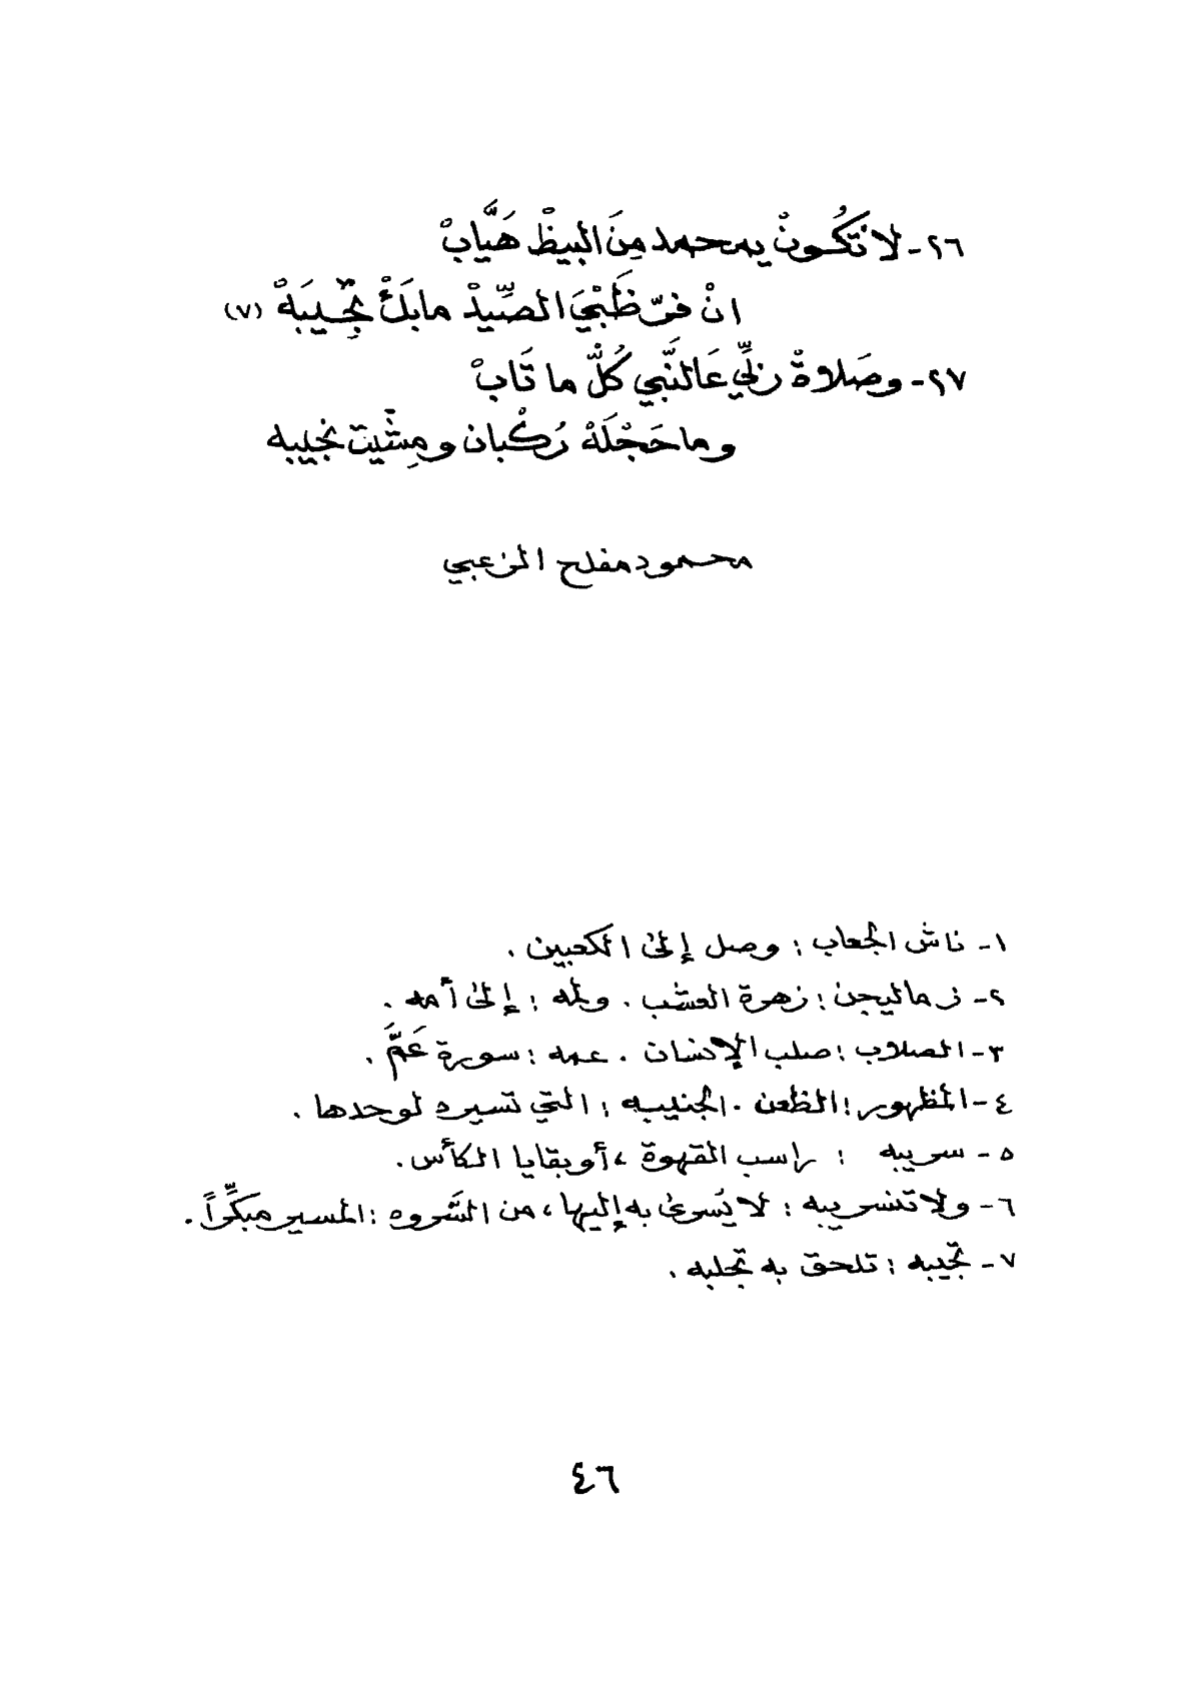 ٢٦- لا تَكُونْ يمحمد مِنَ البيظْ هَيَّابْ
انْ فرّ ظَبْيَ الصِّيدْ مابَكْ تِّجِيبَهْ (٧)
٢٧- وصَلاةْ ربِّي عَالنَّبي كُلّ ما تَابْ
وما حَجْلَهْ رُكْبان ومِشْيت نجيبه
محمود مفلح الزعبي
١- ناش الجعاب : وصل إلى الكعبين .
٢- زماليجن : زهرة العشب . ولمه : إلى أمه .
٣- الصلاب : صلب الإنسان . عمه : سورة عَمَّ .
٤- المظهور : الظعن . الجنيبه : التي تسير لوحدها .
٥- سريبه : راسب القهوة ، أو بقايا الكأس .
٦- ولا تنسريبه : لا يُسرى به إليها ، من السَّروه : المسير مبكِّراً .
٧- تجيبه : تلحق به تجلبه .
٤٦